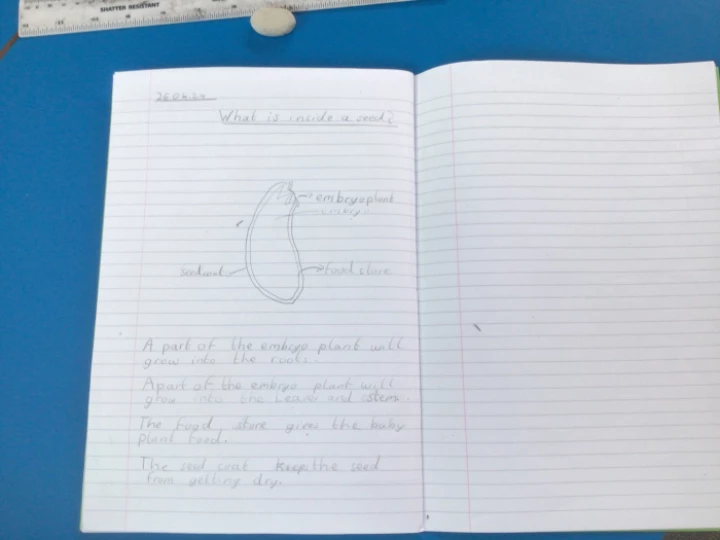 SHATTER RESISTANT
26.04.24
What is inside a seed?
embryo plant
seed coat
food store
A part of the embryo plant will
grow into the roots.
A part of the embryo plant will
grow into the Leaves and stem.
The food store gives the baby
plant food.
The seed coat keep the seed
from getting dry.